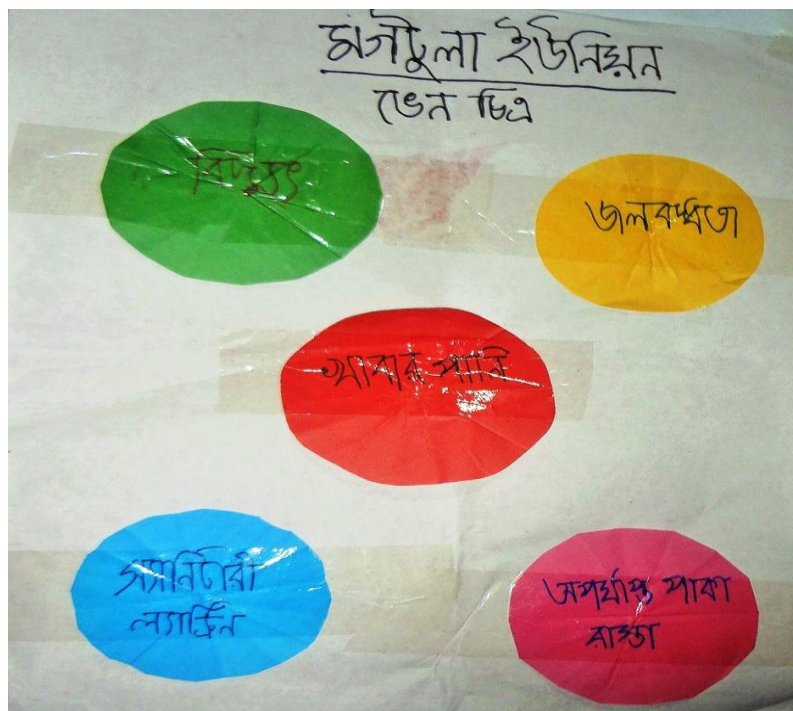 মগটুলা ইউনিয়ন
ভেন চিত্র
বিদ্যুৎ
জলবদ্ধতা
খাবার পানি
স্যানিটারী
ল্যাট্রিন
অপর্যাপ্ত পাকা
রাস্তা